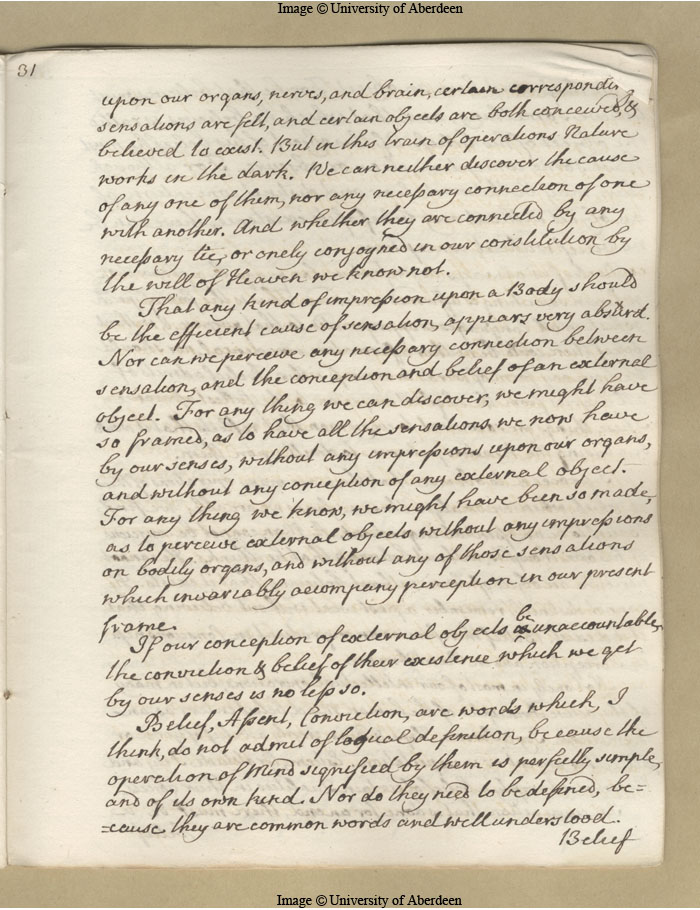 Image © University of Aberdeen
31
upon our organs, nerves, and brain, certain correspondin
sensations are felt, and certain objects are both conceived, &
believed to exist. But in this train of operations Nature
works in the dark. We can neither discover the cause
of any one of them, nor any necessary connection of one
with another. And whether they are connected by any
necessary tie, or onely conjoyned in our constitution by
the will of Heaven we know not.
That any kind of impression upon a Body should
be the efficient cause of sensation, appears very absurd.
Nor can we perceive any necessary connection between
sensation, and the conception and belief of an external
object. For any thing we can discover, we might have
so framed, as to have all the sensations we now have
by our senses, without any impressions upon our organs,
and without any conception of any external object.
For any thing we know, we might have been so made,
as to perceive external objects without any impressions
on bodily organs, and without any of those sensations
which invariably accompany perception in our present
frame.
If our conception of external objects be unaccountable,
the conviction & belief of their existence which we get
by our senses is no less so.
Belief, Assent, Conviction, are words which, I
think, do not admit of logical definition, because the
operation of Mind signified by them is perfectly simple,
and of its own kind. Nor do they need to be defined, be=
=cause they are common words and well understood.
Belief
Image © University of Aberdeen